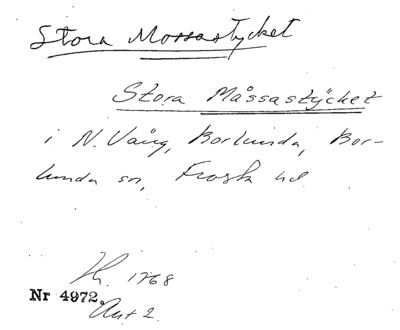 Stora Mossastycket
Stora Måssastÿcket
i N. Vång, Borlunda, Bor-
lunda sn, Frosta hd
1768
Nr 4972
Akt 2